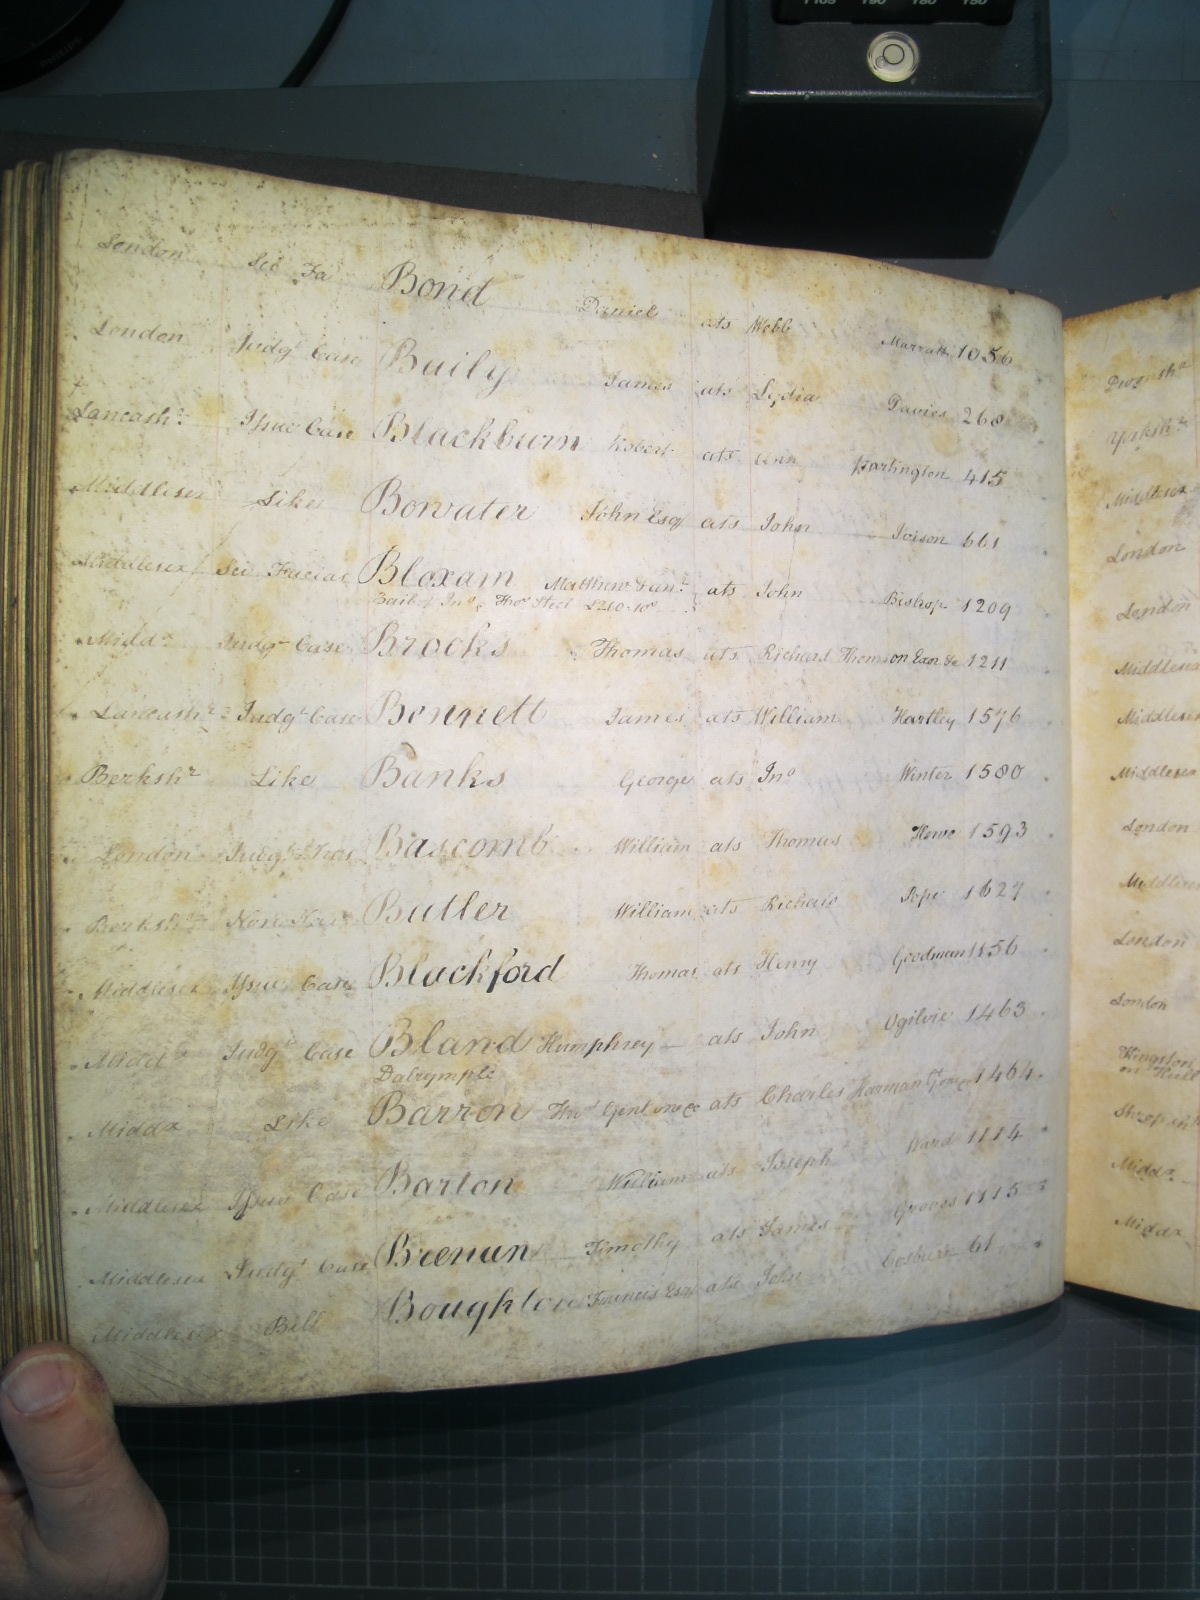 London Sci Fa Bond Daniel ats Webb Marratt 1056
London Judgt Case Baily James ats Lydia Davies 268
Lancashr Issue Case Blackburn Robert ats Ann Partington 415
Middlesex Like Bowater John Esqr ats John Ivison 661
Middlesex Sci Facias Bloxam Matthew & anr ats John Bishop 1209
Bail of Jno & Thos Steel £210.10s
Middx Judgt Case Brocks Thomas ats Richard Thomson Exor &c 1211
Lancashr Judgt Case Bennett James ats William Hartley 1576
Berkshr Like Banks George ats Jno Winter 1580
London Judgt Bascomb William ats Thomas Howe 1593
Berkshr Butler William ats Richard Pope 1627
Middlesex Issue Case Blackford Thomas ats Henry Goodman 1156
Middx Judgt Case Bland Humphrey ats John Ogilvie 1463
Dalrymple
Middx Like Barron Thos Gent one &c ats Charles Harman 1464
Middlesex Issue Case Barton William ats Joseph Ward 1114
Middlesex Judgt Case Brenan Timothy ats James Groves 1115
Middlesex Bill Boughton Francis Esqr ats John 61
Devonshr
Yorkshr
Middlesex
London
London
Middlesex
Middlesex
Middlesex
London
Middlesex
London
London
Kingston
on Hull
Middx
Middx
PHILIPS